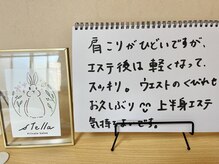 stella
肩こりがひどいですが、
エステ後は軽くなって、
スッキリ。ウエストのくびれも
お久しぶり 上半身エステ
気持ちよいです。